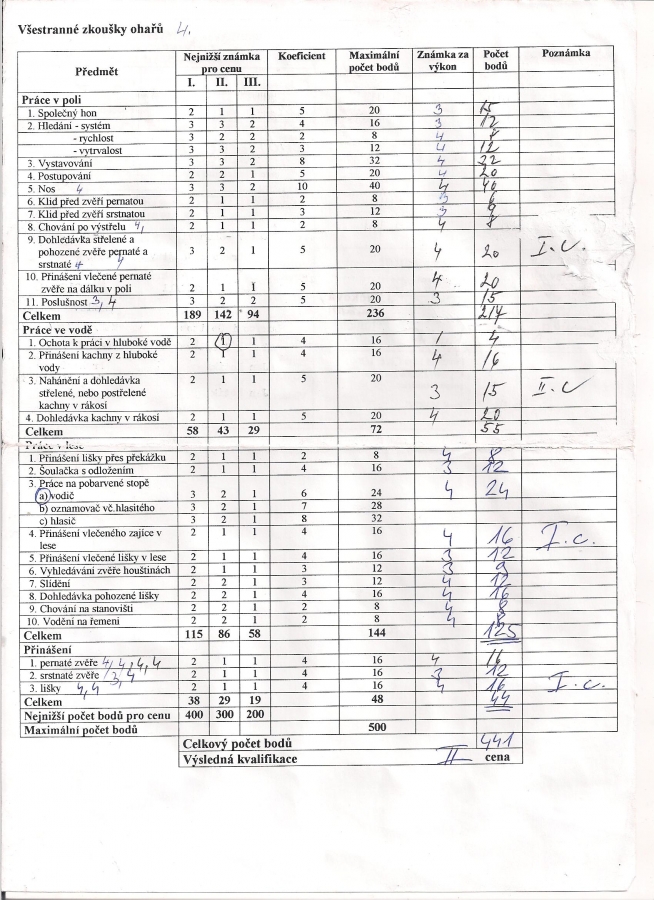 Všestranné zkoušky ohařů 4.
Předmět Nejnižší známka pro cenu Koeficient Maximální počet bodů Známka za výkon Počet bodů Poznámka
I. II. III.
Práce v poli
1. Společný hon 2 1 1 5 20 3 15
2. Hledání - systém 3 3 2 4 16 3 12
- rychlost 3 2 2 2 8 4 8
- vytrvalost 3 3 2 3 12 4 12
3. Vystavování 3 3 2 8 32 4 32
4. Postupování 2 2 1 5 20 4 20
5. Nos 4 3 3 2 10 40 4 40
6. Klid před zvěří pernatou 2 1 1 2 8 3 6
7. Klid před zvěří srstnatou 2 1 1 3 12 3 9
8. Chování po výstřelu 4, 2 1 1 2 8 4 8
9. Dohledávka střelené a
pohozené zvěře pernaté a 3 2 1 5 20 4 20 I.c.
srstnaté 4 4
10. Přinášení vlečené pernaté
zvěře na dálku v poli 2 1 1 5 20 4 20
11. Poslušnost 3, 4 3 2 2 5 20 3 15
Celkem 189 142 94 236 217
Práce ve vodě
1. Ochota k práci v hluboké vodě 2 1 1 4 16 1 4
2. Přinášení kachny z hluboké 2 1 1 4 16 4 16
vody
3. Nahánění a dohledávka 2 1 1 5 20 3 15 II.c
střelené, nebo postřelené
kachny v rákosí
4. Dohledávka kachny v rákosí 2 1 1 5 20 4 20
Celkem 58 43 29 72 55
Práce v lese
1. Přinášení lišky přes překážku 2 1 1 2 8 4 8
2. Šoulačka s odložením 2 1 1 4 16 3 12
3. Práce na pobarvené stopě
a) vodič 3 2 1 6 24 4 24
b) oznamovač vč.hlasitého 3 2 1 7 28
c) hlasič 3 2 1 8 32
4. Přinášení vlečeného zajíce v 2 1 1 4 16 4 16 I.c.
lese
5. Přinášení vlečené lišky v lese 2 1 1 4 16 3 12
6. Vyhledávání zvěře houštinách 2 1 1 3 12 3 9
7. Slídění 2 2 1 3 12 4 12
8. Dohledávka pohozené lišky 2 2 1 4 16 4 16
9. Chování na stanovišti 2 2 1 2 8 4 8
10. Vodění na řemeni 2 2 1 2 8 4 8
Celkem 115 86 58 144 125
Přinášení
1. pernaté zvěře 4, 4, 4, 4 2 1 1 4 16 4 16
2. srstnaté zvěře 3, 4 2 1 1 4 16 3 12
3. lišky 4, 4 2 1 1 4 16 4 16 I.c.
Celkem 38 29 19 48 44
Nejnižší počet bodů pro cenu 400 300 200
Maximální počet bodů 500
Celkový počet bodů 441
Výsledná kvalifikace II cena